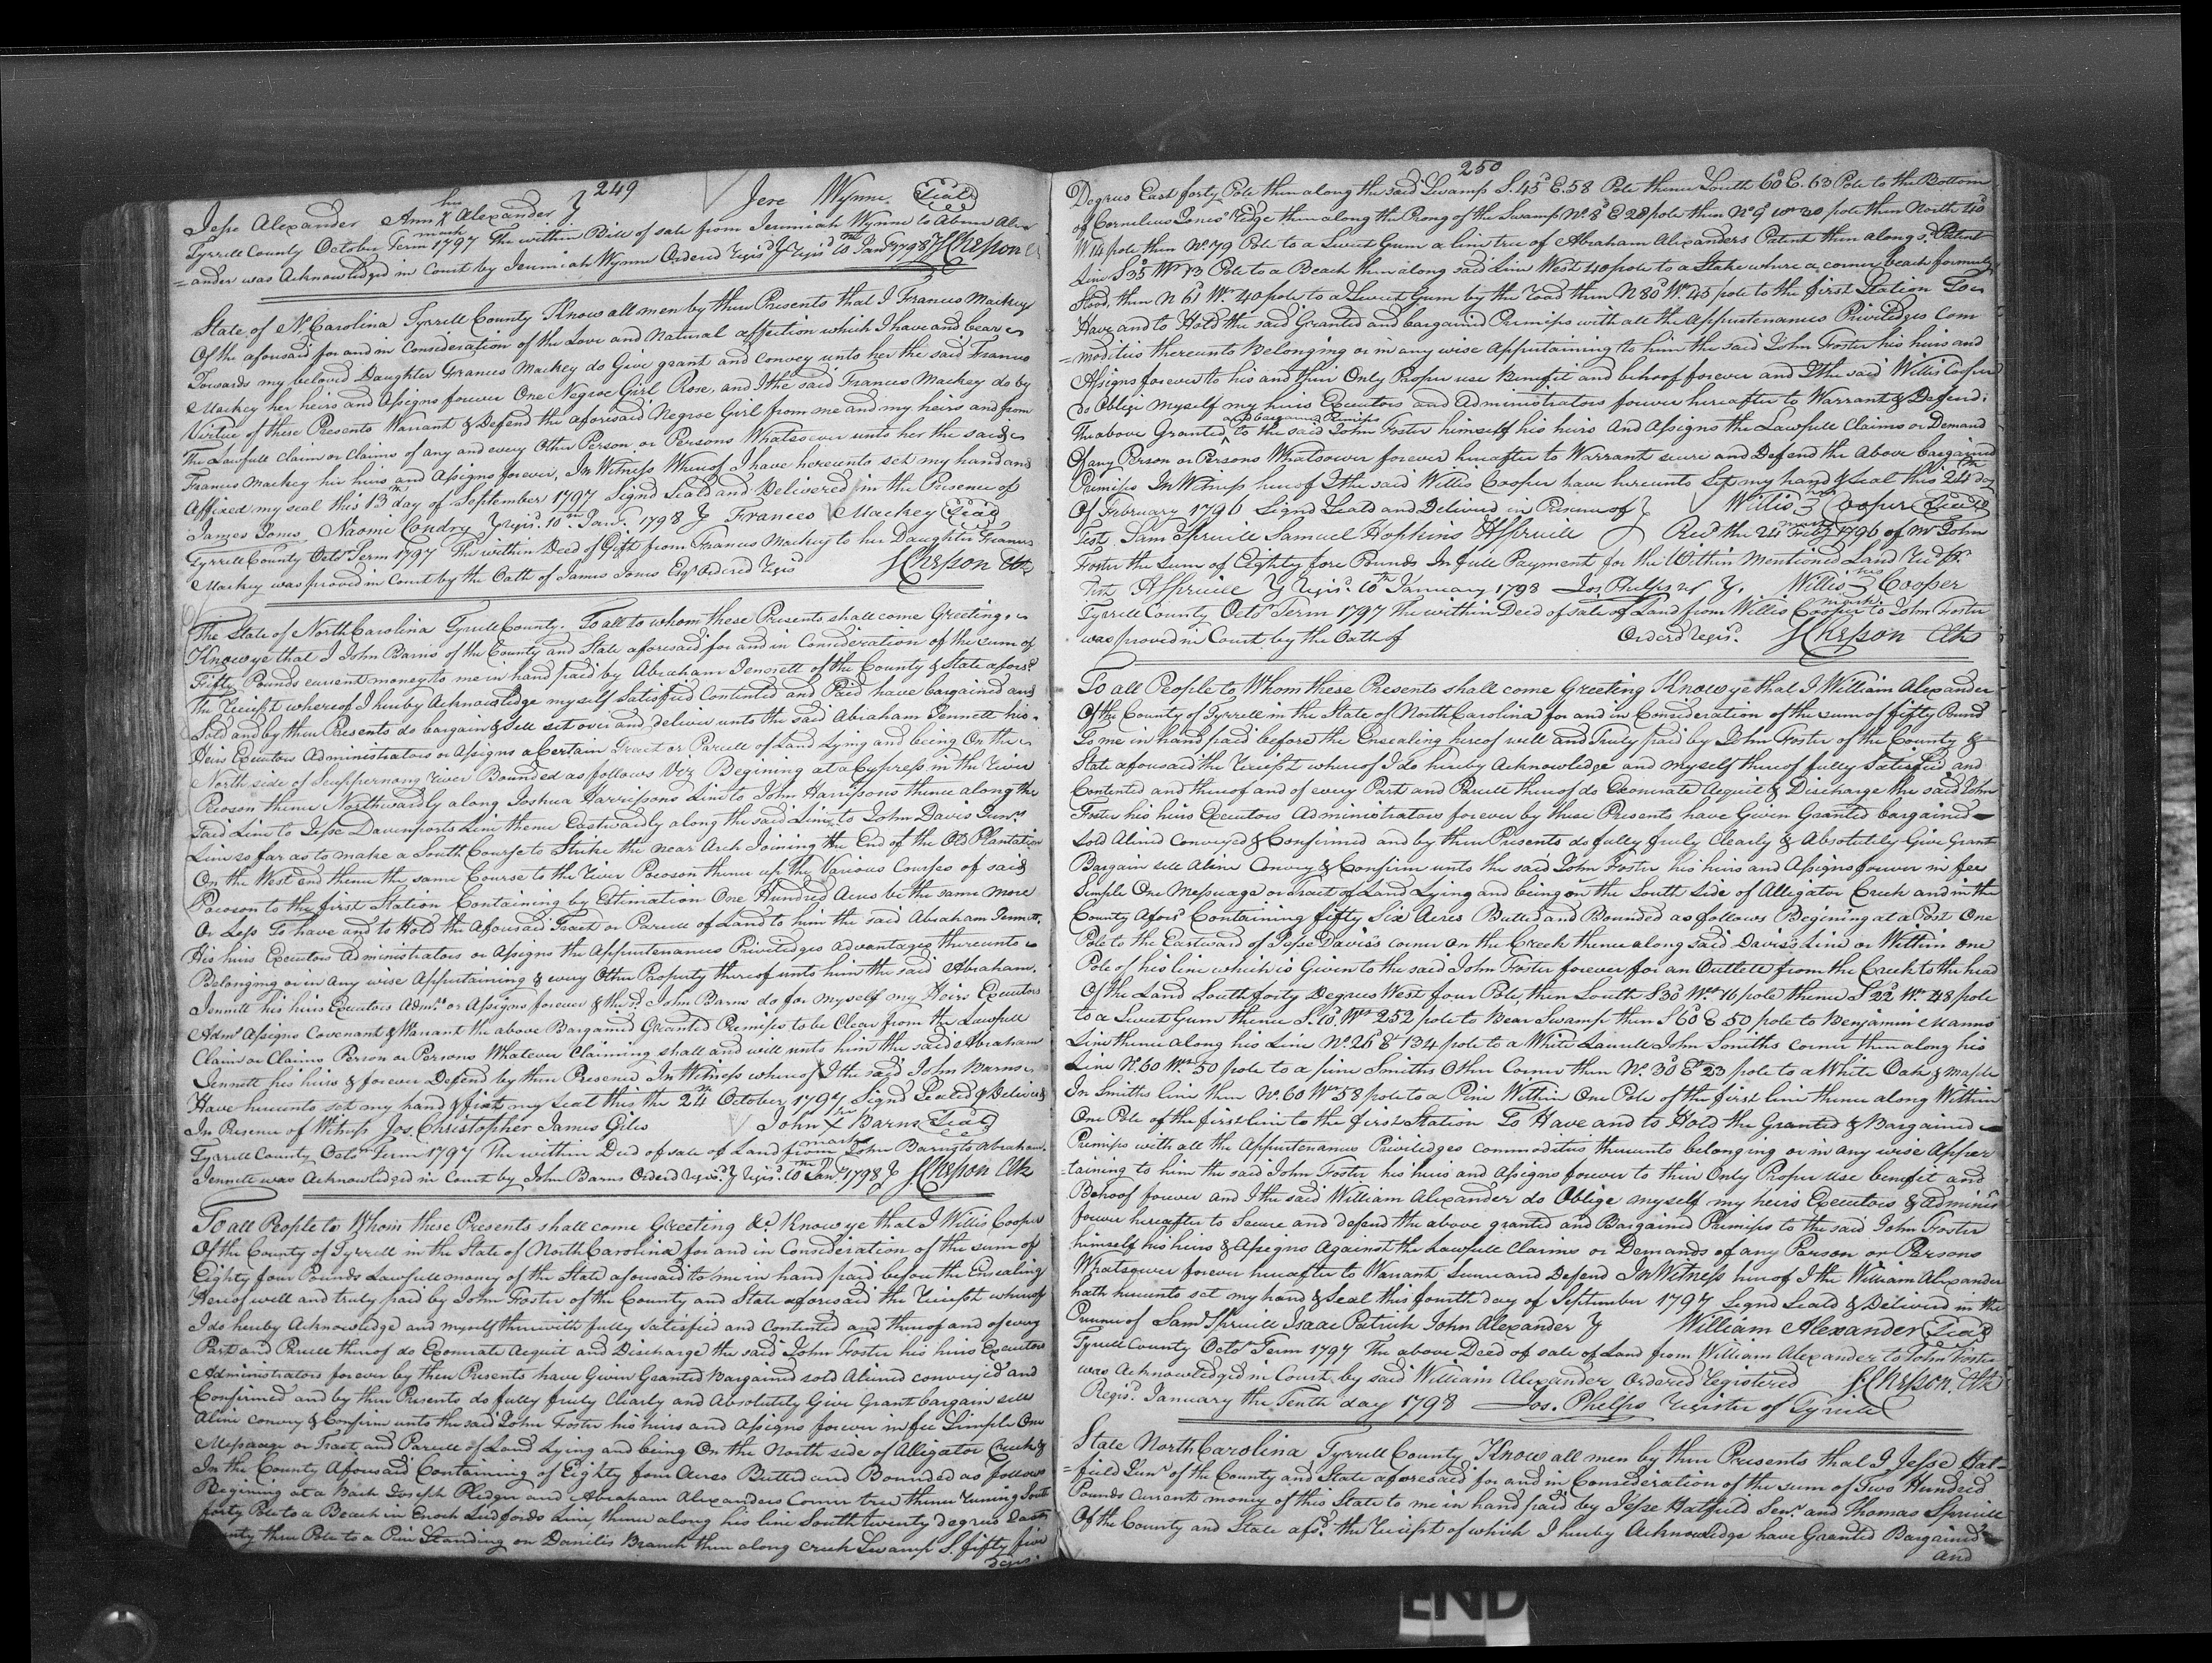 249
Jesse Alexander Ann her mark X Alexander } Jere Wynne Seal
Tyrrell County October Term 1797 The within Bill of sale from Jeremiah Wynne to Abner Alex
=ander was Acknowledged in Court by Jeremiah Wynne Ordered Regisd } Regisd 10th Jany 1798 } J Chesson Ck
State of No Carolina Tyrrell County Know all men by these Presents that I Frances Mackey
Of the aforesaid for and in Consideration of the Love and Natural affection which I have and bear
Towards my beloved Daughter Frances Mackey do Give grant and Convey unto her the said Frances
Mackey her heirs and Assigns forever One Negroe Girl Rose, and I the said Frances Mackey do by
Virtue of these Presents Warrant & Defend the aforesaid Negroe Girl from me and my heirs and from
The Lawfull Claim or Claims of any and every Other Person or Persons Whatsoever unto her the said
Frances Mackey her heirs and Assigns forever, In Witness Whereof I have hereunto set my hand and
Affixed my seal this 13th day of September 1797 Signd Seald and Delivered in the Presence of
James Jones Naomi Condry } Regisd 10th Jany 1798 } Frances Mackey Seal
Tyrrell County Octr Term 1797 The within Deed of Gift from Frances Mackey to her Daughter Frances
Mackey was proved in Court by the Oath of James Jones Esqr Ordered Regis J Chesson Ck
The State of North Carolina Tyrrell County. To all to whom these Presents shall come Greeting
Know ye that I John Barns of the County and State aforesaid for and in Consideration of the sum of
Fifty Pounds current money to me in hand paid by Abraham Jennett of the County & State aforsd
The Receipt whereof I hereby Acknowledge myself Satisfied Contented and Paid have bargained and
Sold and by these Presents do bargain & Sell set over and deliver unto the said Abraham Jennett his
Heirs Executors Administrators or Assigns a Certain Tract or Parcell of Land Lying and being On the
North side of Scuppernong River Bounded as follows Viz Begining at a Cypress in the River
Pocoson thence Northwardly along Joshua Harrissons Line to John Harrissons thence along the
said Line to Jesse Davenports Line thence Eastwardly along the said Line to John Davis Junrs
Line so far as to make a South Course to Strike the near Arch Joining the End of the Old Plantation
On the West end thence the same Course to the River Pocoson thence up the Various Courses of said
Pocoson to the first Station Containing by Estimation One Hundred Acres be the same more
Or Less To have and to Hold the Aforesaid Tract or Parcell of Land to him the said Abraham Jennett
His heirs Executors Administrators or Assigns the Appurtenances Priviledges advantages thereunto
Belonging or in any wise Appurtaining & every Other Property thereof unto him the said Abraham
Jennett his heirs Executors Admrs or Assigns forever & the sd John Barns do for myself my Heirs Executors
Admrs Assigns Covenant & Warrant the above Bargained Granted Premises to be Clear from the Lawfull
Claim or Claims Person or Persons Whatever Claiming shall and will unto him the said Abraham
Jennett his heirs & forever Defend by these Presence In Witness whereof I the said John Barns
Have hereunto set my hand & fixt my Seal this the 24th October 1797 Signd Seald & Deliverd
In Presence of Witness Jos. Christopher James Giles John his mark X Barns Seal
Tyrrell County Octr Term 1797 The within Deed of sale of Land from John Barns to Abraham
Jennett was Acknowledged in Court by John Barns Orderd Regisd } Regisd 10th Jany 1798 } J Chesson Ck
To all People to Whom these Presents shall come Greeting &c Know ye that I Willis Cooper
Of the County of Tyrrell in the State of North Carolina for and in Consideration of the sum of
Eighty four Pounds Lawfull money of the State aforesaid to me in hand paid before the Ensealing
Hereof well and truly paid by John Foster of the County and State aforesaid the Receipt whereof
I do hereby Acknowledge and myself therewith fully satisfied and contented and thereof and of every
Part and Parcell thereof do Exonerate Acquit and Discharge the said John Foster his heirs Executors
Administrators forever by these Presents have Given Granted Bargained sold Aliened conveyed and
Confirmed and by these Presents do fully freely Clearly and Absolutely Give Grant bargain sell
Aline convey & Confirm unto the said John Foster his heirs and Assigns forever in fee Simple One
Messuage or Tract and Parcell of Land Lying and being On the North side of Alligator Creek &
In the County Aforesaid Containing of Eighty four Acres Butted and Bounded as follows
Begining at a Bach Joseph Pledger and Abraham Alexanders Corner tree thence runing South
forty Pole to a Beach in Enoch Ludfords Line, thence along his line South twenty degrees East
thre Pole to a Pine Standing on Daniels Branch then along creek Swamp S. fifty five
Degres
250
Degrees East forty Pole then along the said Swamp S. 45° E. 58 Pole thence South 60 E. 63 Pole to the Bottom
of Cornelius Jones' Ridge then along the Prong of the Swamp No 8° E 28 pole then No 9° Wt 20 pole then North 40
W. 14 pole then No 79 Pole to a Sweet Gum a line tree of Abraham Alexanders Patent then along sd Patent
Line S 35 Wt 73 Pole to a Beach then along said Line West 40 pole to a Stake where a corner beach formerly
Stood, then N 61° Wt 40 pole to a Sweet Gum by the road then N 80° Wt 45 pole to the first Station To
Have and to Hold the said Granted and bargained Premises with all the Appurtenances Priviledges Com
=modities thereunto Belonging or in any wise Appurtaining to him the said John Foster his heirs and
Assigns forever to his and their Only Proper use Benefit and behoof forever and I the said Willis Cooper
do Oblige myself my heirs Executors and Administrators forever hereafter to Warrant & Defend
The above Granted and bargained Premises to the said John Foster himself his heirs And Assigns the Lawfull Claims or Demand
Of any Person or Persons Whatsoever forever hereafter to Warrant secure and Defend the Above bargained
Premises In Witness hereof I the said Willis Cooper have hereunto Set my hand & Seal this 24th day
Of February 1796 Signd Seald and Deliverd in Presence of } Willis his mark Cooper Seal
Test Sam Spruill Samuel Hopkins HSpruill } Recd the 24 Feby 1796 of Mr John
Foster the Sum of Eighty fore Pounds In full Payment for the Within Mentioned Land Recd Pr
Test HSpruill } Regisd 10th January 1798 Jos Phelps } Willis his mark Cooper
Tyrrell County Octr Term 1797 The within Deed of sale of Land from Willis Cooper to John Foster
was proved in Court by the Oath of Orderd Regisd. J Chesson Ck
To all People to Whom these Presents shall come Greeting Know ye that I William Alexander
Of the County of Tyrrell in the State of North Carolina for and in Consideration of the sum of fifty Pound
To me in hand paid before the Ensealing hereof well and Truly paid by John Foster of the County &
State aforesaid the Receipt whereof I do hereby Acknowledge and myself thereof fully Satisfied and
Contented and thereof and of every Part and Parcell thereof do Exonerate Acquit & Discharge the said John
Foster his heirs Executors Administrators forever by these Presents have Given Granted bargained
Sold Aliend Conveyed & Confirmed and by these Presents do fully freely Clearly & Absolutely Give Grant
Bargain sell Aline Convey & Confirm unto the said John Foster his heirs and Assigns forever in fee
Simple One Messuage or tract of Land Lying and being on the South Side of Alligator Creek and in the
County Aforsd Containing fifty Six Acres Butted and Bounded as follows Begining at a Post One
Pole to the Eastward of Jesse Davis's corner on the Creek thence along said Davis's Line or Within one
Pole of his line which is Given to the said John Foster forever for an Outlett from the Creek to the head
Of the Land South forty Degrees West four Pole, then South S 30° Wt 16 pole thence S 22° Wt 48 pole
to a Sweet Gum thence S. 10. Wt 252 pole to Bear Swamp then S 60 E 50 pole to Benjamin Manns
Line thence along his Line No 26 Et 134 pole to a White Laurell John Smiths corner then along his
Line N. 60 Wt 50 pole to a pine Smiths Other Corner then No 30 Et 23 pole to a White Oak & maple
In Smiths line then No 60 Wt 58 pole to a Pine Within One Pole of the first line thence along Within
One Pole of the first line to the first Station To Have and to Hold the Granted & Bargained
Premises with all the Appurtenances Priviledges commodities thereunto belonging or in any wise Apper
=taining to him the said John Foster his heirs and Assigns forever to their Only Proper Use benefit and
Behoof forever and I the said William Alexander do Oblige myself my heirs Executors & Adminrs
forever hereafter to Secure and defend the above granted and Bargained Premises to the said John Foster
himself his heirs & Assigns Against the Lawfull Claims or Demands of any Person or Persons
Whatsoever forever hereafter to Warrant Secure and Defend In Witness hereof I the William Alexander
hath hereunto set my hand & Seal this fourth day of September 1797 Signd Seald & Deliverd in the
Presence of Saml Spruill Isaac Patrick John Alexander } William Alexander Seal
Tyrrell County Octr Term 1797 The above Deed of sale of Land from William Alexander to John Foster
was Acknowledged in Court by said William Alexander Ordered Registered J. Chesson Ck
Regisd. January the Tenth day 1798 Jos. Phelps Register of Tyrrell
State North Carolina Tyrrell County Know all men by these Presents that I Jesse Hat=
=field Junr of the County and State aforesaid for and in Consideration of the sum of Two Hundred
Pounds Current money of this State to me in hand paid by Jesse Hatfield Senr. and Thomas Spruill
Of the County and State afsd. the Receipt of which I hereby Acknowledge have Granted Bargained
and
END